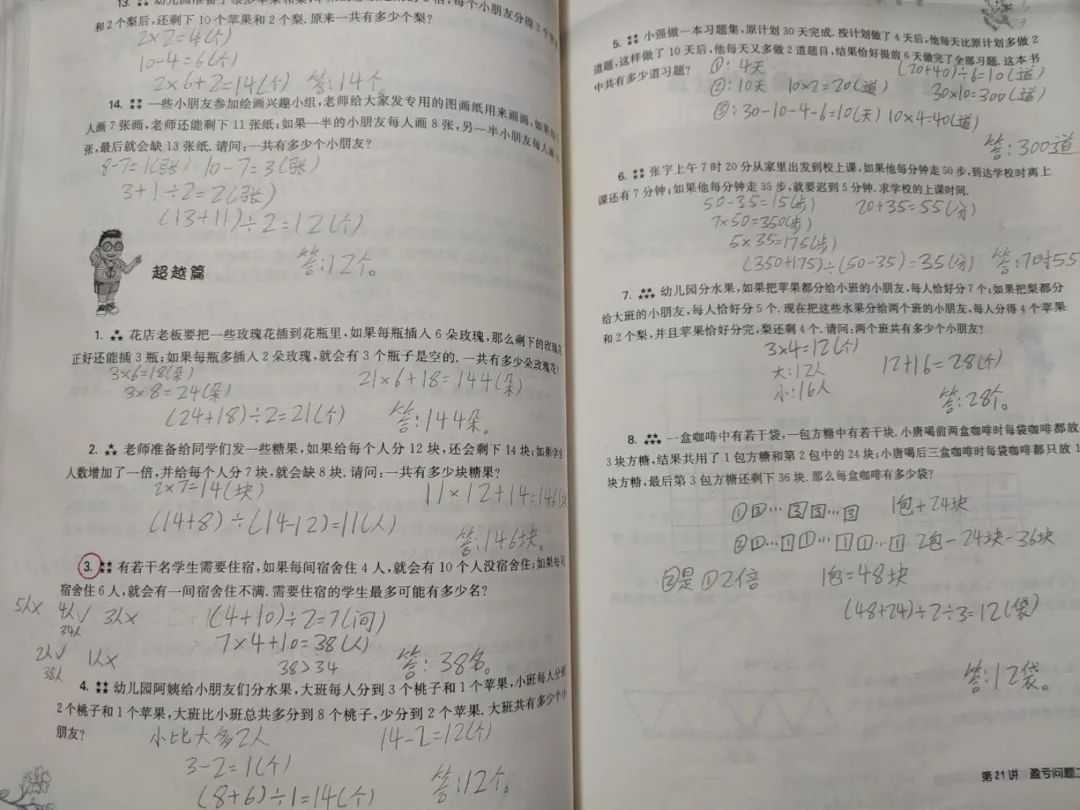 和2个梨后,还剩下10个苹果和2个梨.原来一共有多少个梨?
2×2=4(个)
10-4=6(个)
2×6+2=14(个) 答:14个
14. 一些小朋友参加绘画兴趣小组,老师给大家发专用的图画纸用来画画,如果每
人画7张画,老师还能剩下11张纸;如果一半的小朋友每人画8张,另一半小朋友每人画
张,最后就会缺13张纸.请问:一共有多少个小朋友?
8-7=1(张) 10-7=3(张)
3+1÷2=2(张)
(13+11)÷2=12(个)
答:12个。
超越篇
1. 花店老板要把一些玫瑰花插到花瓶里,如果每瓶插入6朵玫瑰,那么剩下的玫瑰花
正好还能插3瓶;如果每瓶多插入2朵玫瑰,就会有3个瓶子是空的.一共有多少朵玫瑰花?
3×6=18(朵) 21×6+18=144(朵)
3×8=24(朵)
(24+18)÷2=21(个) 答:144朵。
2. 老师准备给同学们发一些糖果,如果给每个人分12块,还会剩下14块;如果学生
人数增加了一倍,并给每个人分7块,就会缺8块.请问:一共有多少块糖果?
2×7=14(块) 11×12+14=146(块
(14+8)÷(14-12)=11(人)
答:146块。
3. 有若干名学生需要住宿,如果每间宿舍住4人,就会有10个人没宿舍住;如果每间
宿舍住6人,就会有一间宿舍住不满.需要住宿的学生最多可能有多少名?
5人× 4人√ 3人× (4+10)÷2=7(间)
34人 7×4+10=38(人)
2人√ 1人× 38>34 答:38名。
38人
4. 幼儿园阿姨给小朋友们分水果,大班每人分到3个桃子和1个苹果,小班每人分到
2个桃子和1个苹果,大班比小班总共多分到8个桃子,少分到2个苹果.大班共有多少个小
朋友?
小比大多2人 14-2=12(个)
3-2=1(个)
(8+6)÷1=14(个) 答:12个。
5. 小强做一本习题集,原计划30天完成.按计划做了4天后,他每天比原计划多做2
道题,这样做了10天后,他每天又多做2道题目,结果恰好提前6天做完了全部习题.这本书
中共有多少道习题?
①:4天 (20+40)÷6=10(道)
②:10天 10×2=20(道) 30×10=300(道)
③:30-10-4-6=10(天) 10×4=40(道)
答:300道
6. 张宇上午7时20分从家里出发到校上课,如果他每分钟走50步,到达学校时离上
课还有7分钟;如果他每分钟走35步,就要迟到5分钟.求学校的上课时间.
50-35=15(步) 20+35=55(分)
7×50=350(步)
5×35=175(步)
(350+175)÷(50-35)=35(分) 答:7时55
7. 幼儿园分水果,如果把苹果都分给小班的小朋友,每人恰好分7个;如果把梨都分
给大班的小朋友,每人恰好分5个.现在把这些水果分给两个班的小朋友,每人分得4个苹果
和2个梨,并且苹果恰好分完,梨还剩4个.请问:两个班共有多少个小朋友?
3×4=12(个)
大:12人 12+16=28(个)
小:16人
答:28个。
8. 一盒咖啡中有若干袋,一包方糖中有若干块.小唐喝前两盒咖啡时每袋咖啡都放
3块方糖,结果共用了1包方糖和第2包中的24块;小唐喝后三盒咖啡时每袋咖啡都只放1
块方糖,最后第3包方糖还剩下36块.那么每盒咖啡有多少袋?
1包+24块
2包-24块-36块
②是①2倍 1包=48块
(48+24)÷2÷3=12(袋)
答:12袋。
第21讲 盈亏问题二